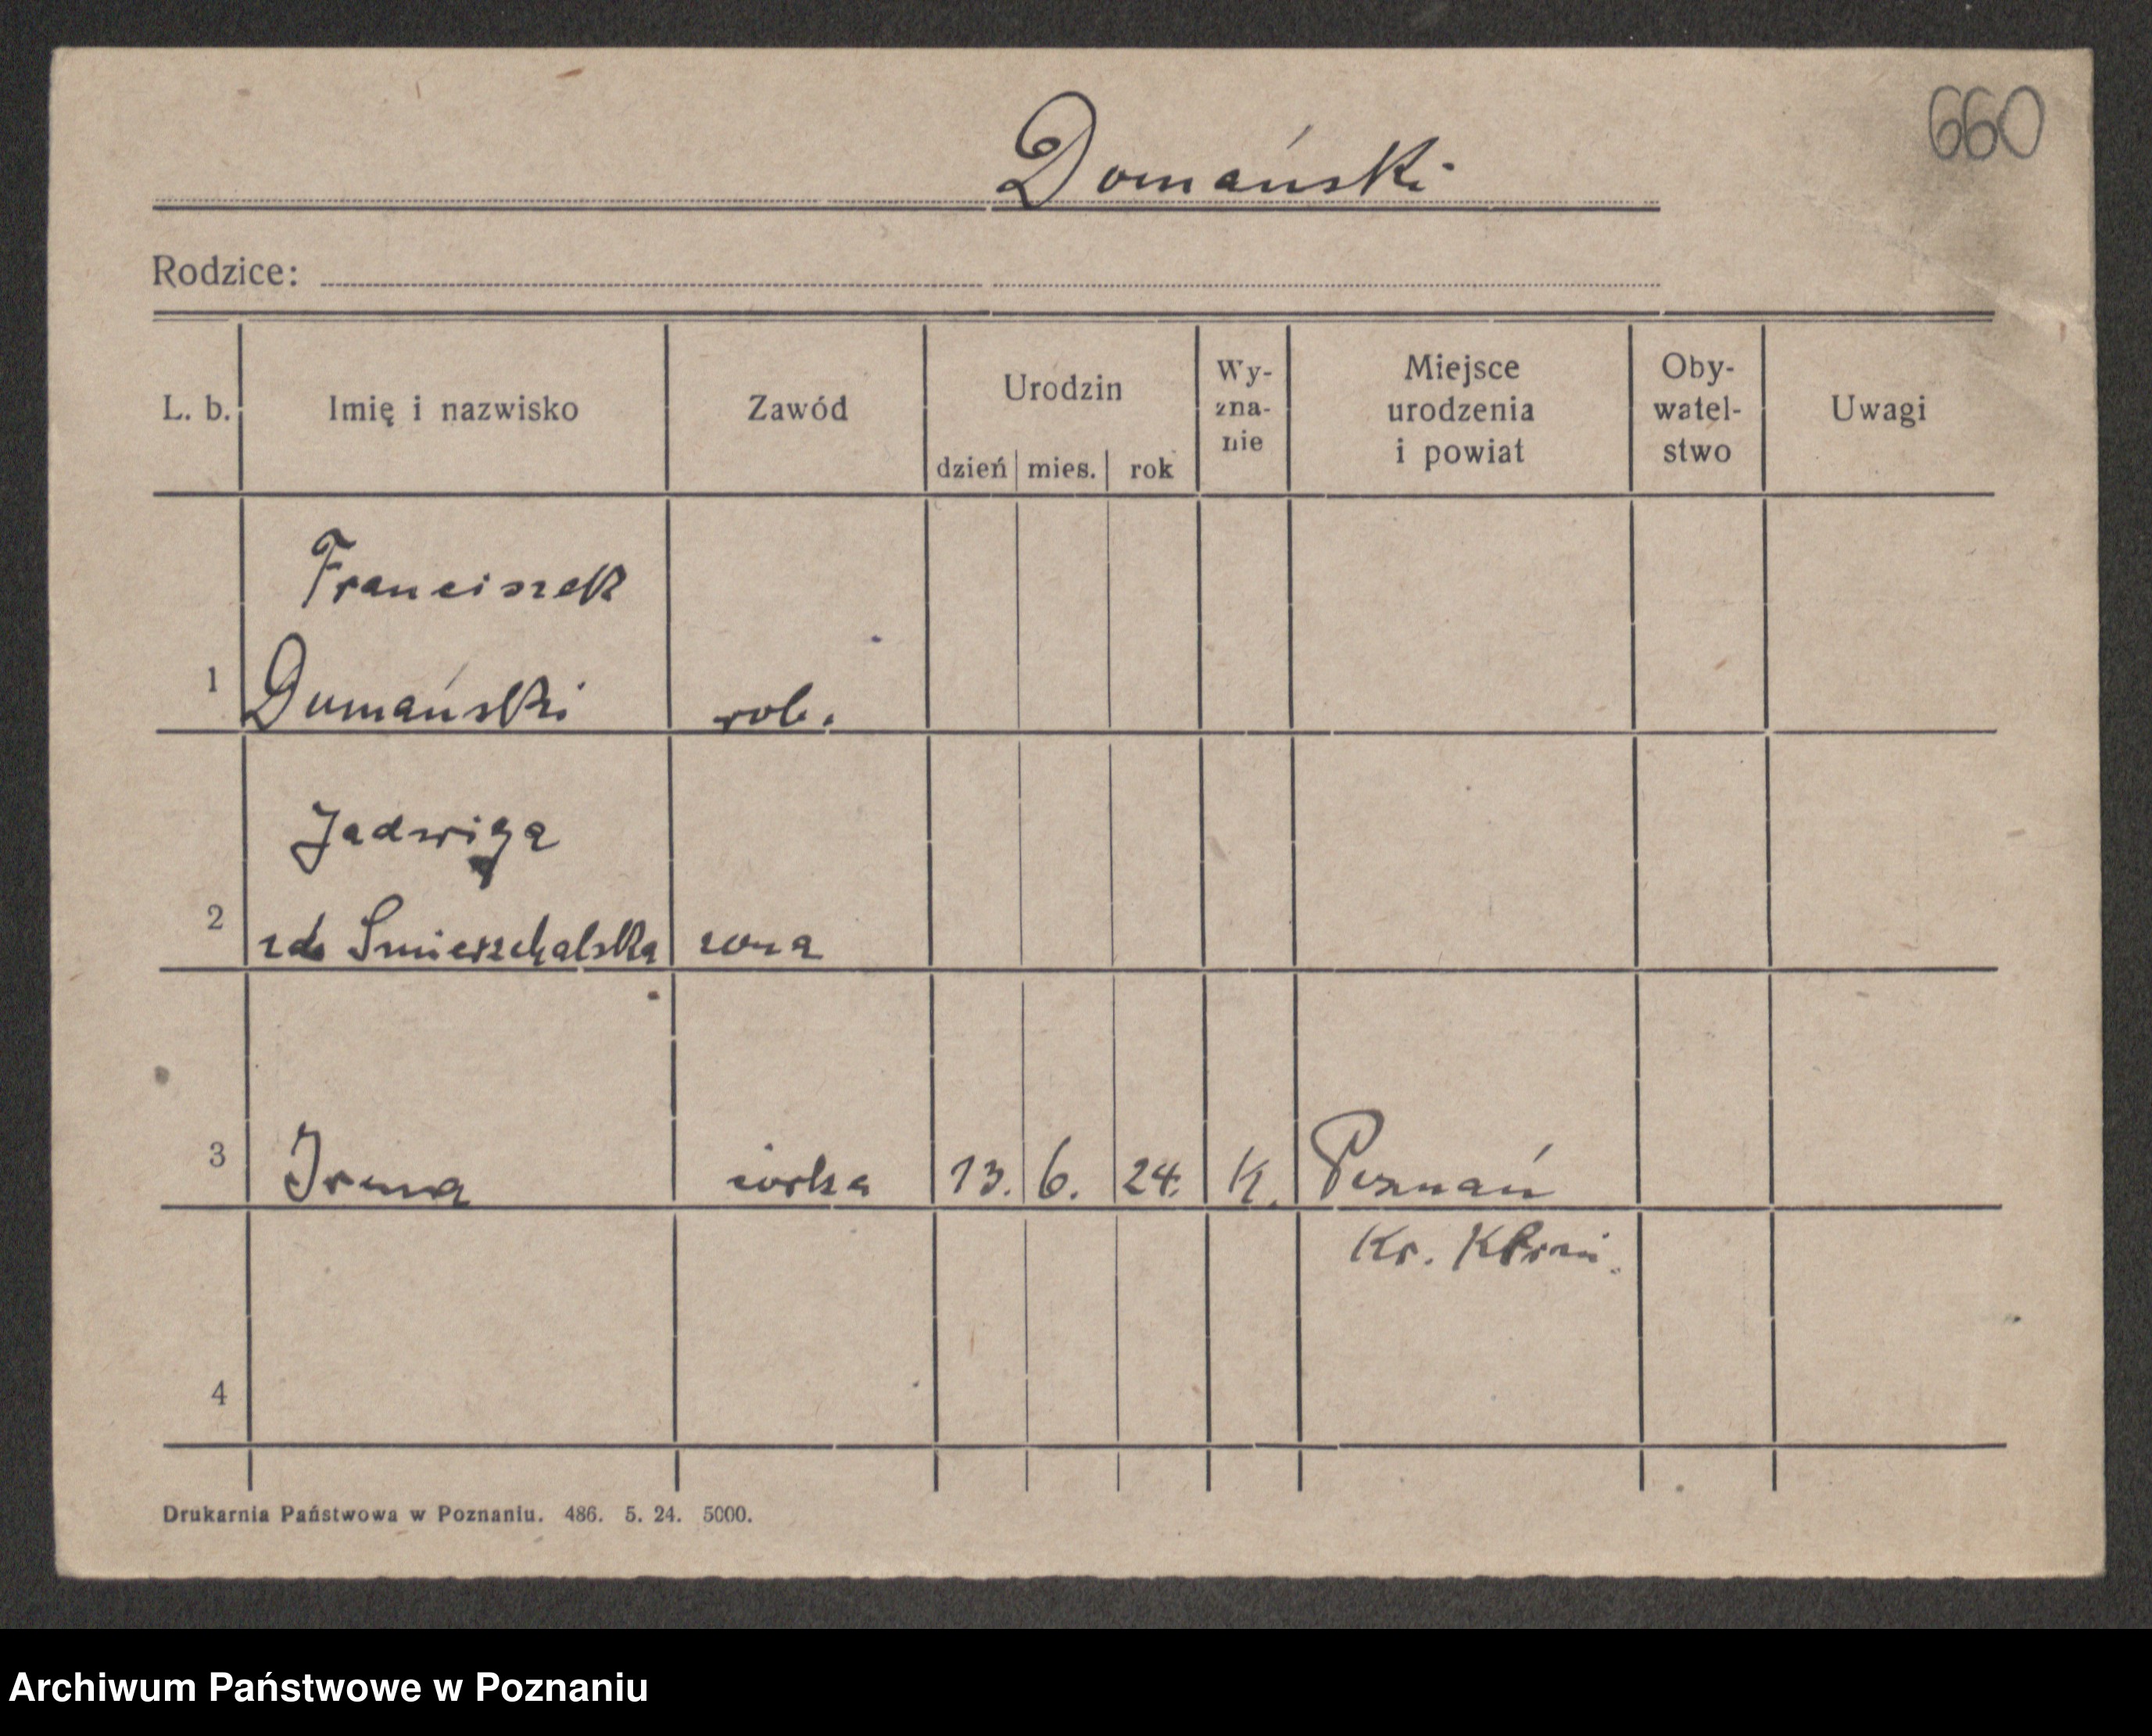 660
Domański
Rodzice:
L. b. Imię i nazwisko Zawód Urodzin dzień mies. rok Wy-zna-nie Miejsce urodzenia i powiat Oby-watel-stwo Uwagi
Franciszek
1 Domański rob.
Jadwiga
2 zd. Smierzchalska zona
3 Irena córka 13. 6. 24. K. Poznań
Kr.
4
Drukarnia Państwowa w Poznaniu. 486. 5. 24. 5000.
Archiwum Państwowe w Poznaniu